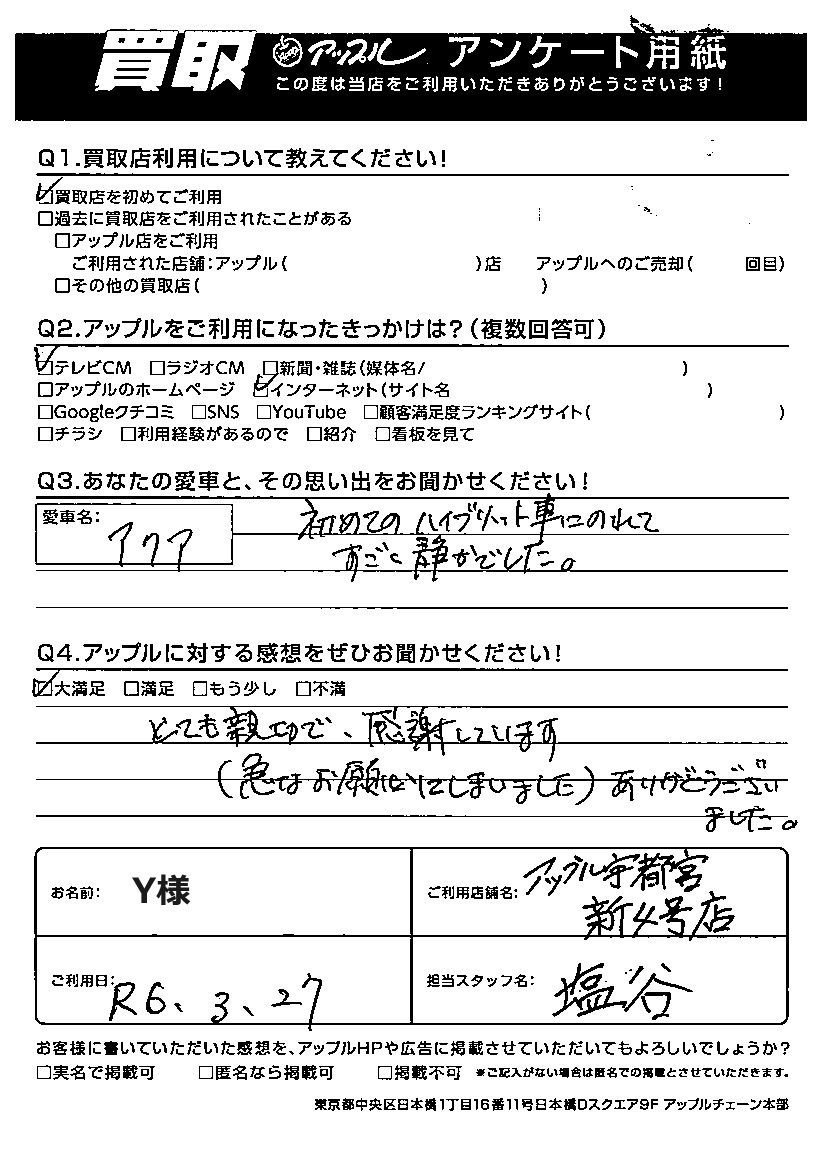 買取 アップル アンケート用紙
この度は当店をご利用いただきありがとうございます!
Q1.買取店利用について教えてください!
☑買取店を初めてご利用
□過去に買取店をご利用されたことがある
□アップル店をご利用
ご利用された店舗:アップル( )店 アップルへのご売却( 回目)
□その他の買取店( )
Q2.アップルをご利用になったきっかけは?(複数回答可)
☑テレビCM □ラジオCM □新聞・雑誌(媒体名/ )
□アップルのホームページ ☑インターネット(サイト名 )
□Googleクチコミ □SNS □YouTube □顧客満足度ランキングサイト( )
□チラシ □利用経験があるので □紹介 □看板を見て
Q3.あなたの愛車と、その思い出をお聞かせください!
愛車名: アクア
初めてのハイブリット車にのれて
すごく静かでした。
Q4.アップルに対する感想をぜひお聞かせください!
☑大満足 □満足 □もう少し □不満
とても親切で、感謝しています
(急なお願いにしまいました)ありがとうござい
ました。
お名前: Y様
ご利用店舗名: アップル宇都宮
新4号店
ご利用日: R6、3、27
担当スタッフ名: 塩谷
お客様に書いていただいた感想を、アップルHPや広告に掲載させていただいてもよろしいでしょうか?
□実名で掲載可 □匿名なら掲載可 □掲載不可 *ご記入がない場合は匿名での掲載とさせていただきます。
東京都中央区日本橋1丁目16番11号日本橋Dスクエア9F アップルチェーン本部